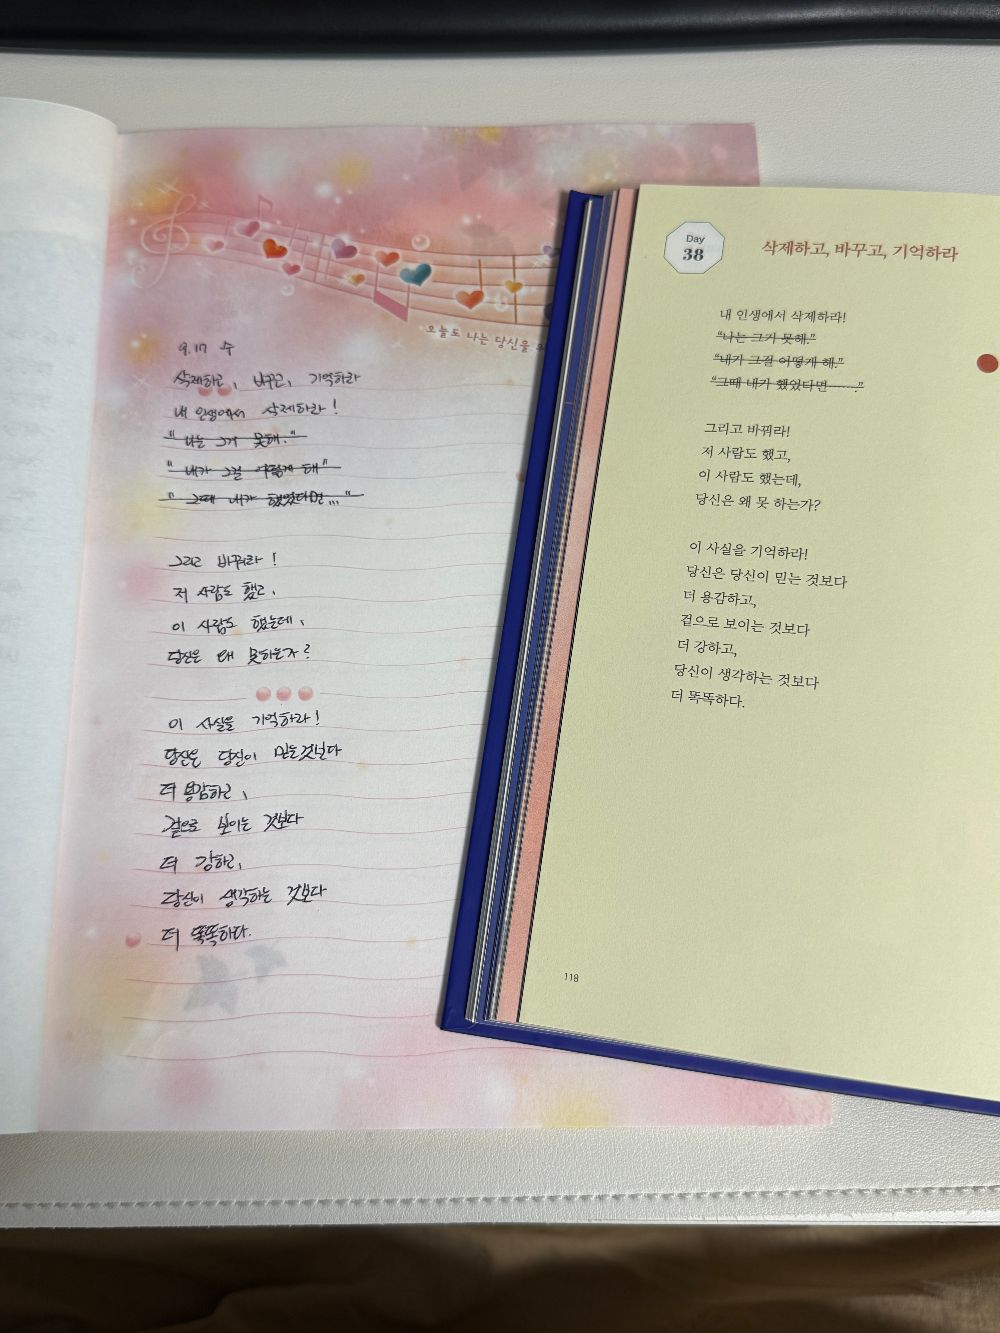 오늘도 나는 당신을
9.17 수
삭제하고, 바꾸고, 기억하라
내 인생에서 삭제하라!
"나는 그거 못해."
"내가 그걸 어떻게 해"
"그때 내가 했었다면..."
그리고 바꿔라!
저 사람도 했고,
이 사람도 했는데,
당신은 왜 못하는가?
이 사실을 기억하라!
당신은 당신이 믿는 것보다
더 용감하고,
겉으로 보이는 것보다
더 강하고,
당신이 생각하는 것보다
더 똑똑하다.
Day
38
삭제하고, 바꾸고, 기억하라
내 인생에서 삭제하라!
"나는 그거 못해."
"내가 그걸 어떻게 해."
"그때 내가 했었다면……."
그리고 바꿔라!
저 사람도 했고,
이 사람도 했는데,
당신은 왜 못 하는가?
이 사실을 기억하라!
당신은 당신이 믿는 것보다
더 용감하고,
겉으로 보이는 것보다
더 강하고,
당신이 생각하는 것보다
더 똑똑하다.
118